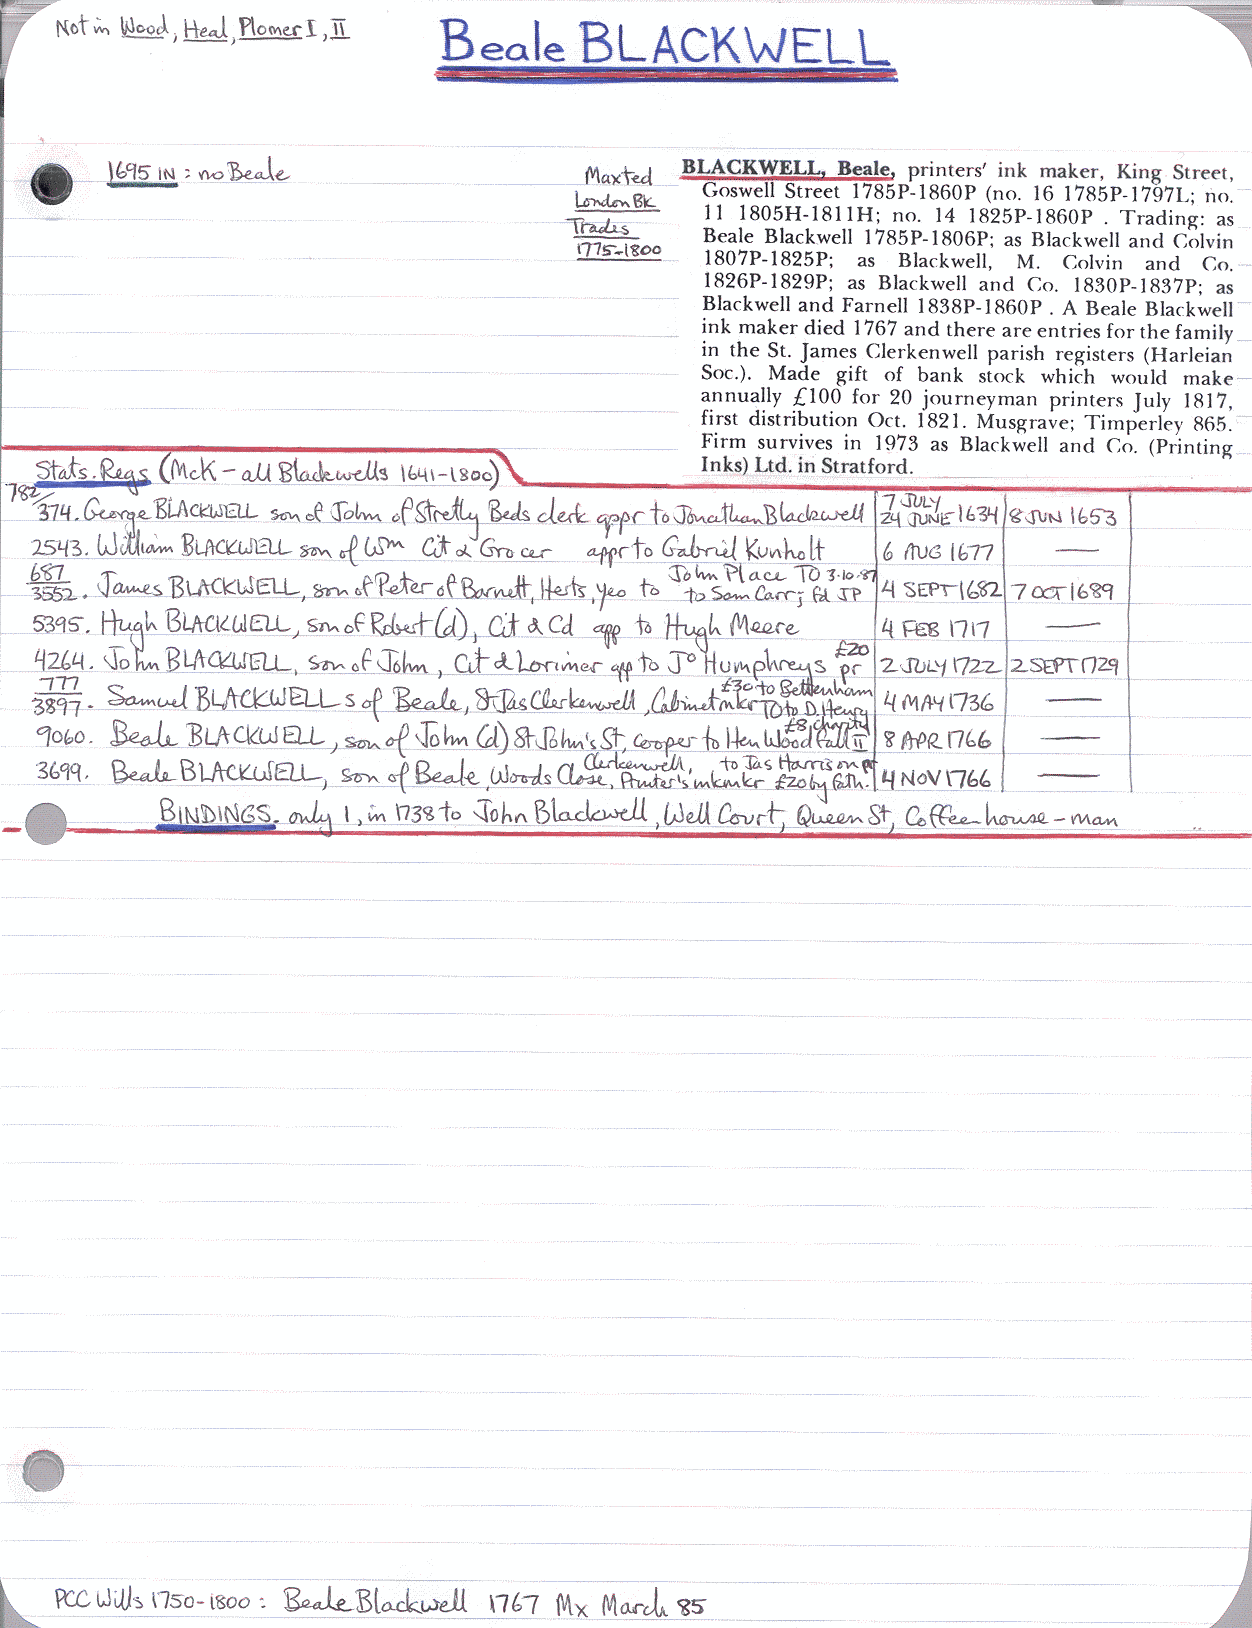 Not in Wood, Heal, Plomer I, II
Beale BLACKWELL
1695 IN : no Beale
Maxted
London Bk
Trades
1775-1800
BLACKWELL, Beale, printers' ink maker, King Street,
Goswell Street 1785P-1860P (no. 16 1785P-1797L; no.
11 1805H-1811H; no. 14 1825P-1860P . Trading: as
Beale Blackwell 1785P-1806P; as Blackwell and Colvin
1807P-1825P; as Blackwell, M. Colvin and Co.
1826P-1829P; as Blackwell and Co. 1830P-1837P; as
Blackwell and Farnell 1838P-1860P . A Beale Blackwell
ink maker died 1767 and there are entries for the family
in the St. James Clerkenwell parish registers (Harleian
Soc.). Made gift of bank stock which would make
annually £100 for 20 journeyman printers July 1817,
first distribution Oct. 1821. Musgrave; Timperley 865.
Firm survives in 1973 as Blackwell and Co. (Printing
Inks) Ltd. in Stratford.
Stats. Regs (McK - all Blackwells 1641-1800)
782/
374. George BLACKWELL son of John of Stretly Beds clerk appr to Jonathan Blackwell 7 JULY 24 JUNE 1634 8 JUN 1653
2543. William BLACKWELL son of Wm Cit & Grocer appr to Gabriel Kunholt 6 AUG 1677 —
687 John Place TO 3.10.87
3552. James BLACKWELL, son of Peter of Barnett, Herts, yeo to to Sam Carr; fd JP 4 SEPT 1682 7 OCT 1689
5395. Hugh BLACKWELL, son of Robert (d), Cit & Cd app to Hugh Meere 4 FEB 1717 —
4264. John BLACKWELL, son of John, Cit & Lorimer app to Jo Humphreys £20 pr 2 JULY 1722 2 SEPT 1729
777 £30 to Bettenham
3897. Samuel BLACKWELL s of Beale, St Jas Clerkenwell, Cabinetmkr TO to D. Henry 4 MAY 1736 —
£8, charity
9060. Beale BLACKWELL, son of John (d) St John's St, cooper to Hen Woodfall II 8 APR 1766 —
Clerkenwell, to Jas Harrison pr
3699. Beale BLACKWELL, son of Beale, Woods Close, Printer's inkmkr £20 by fath. 4 NOV 1766 —
BINDINGS. only 1, in 1738 to John Blackwell, Well Court, Queen St, Coffee house-man
PCC Wills 1750-1800 : Beale Blackwell 1767 Mx March 85